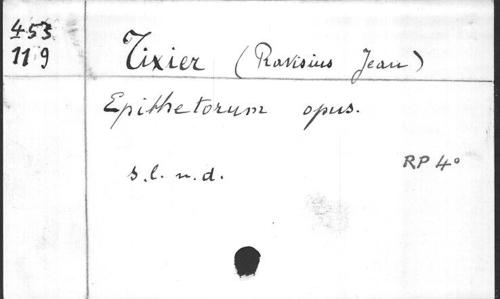 453
119
Tixier (Ravisius Jean)
Epithetorum opus.
s.l. n.d.
RP 4°